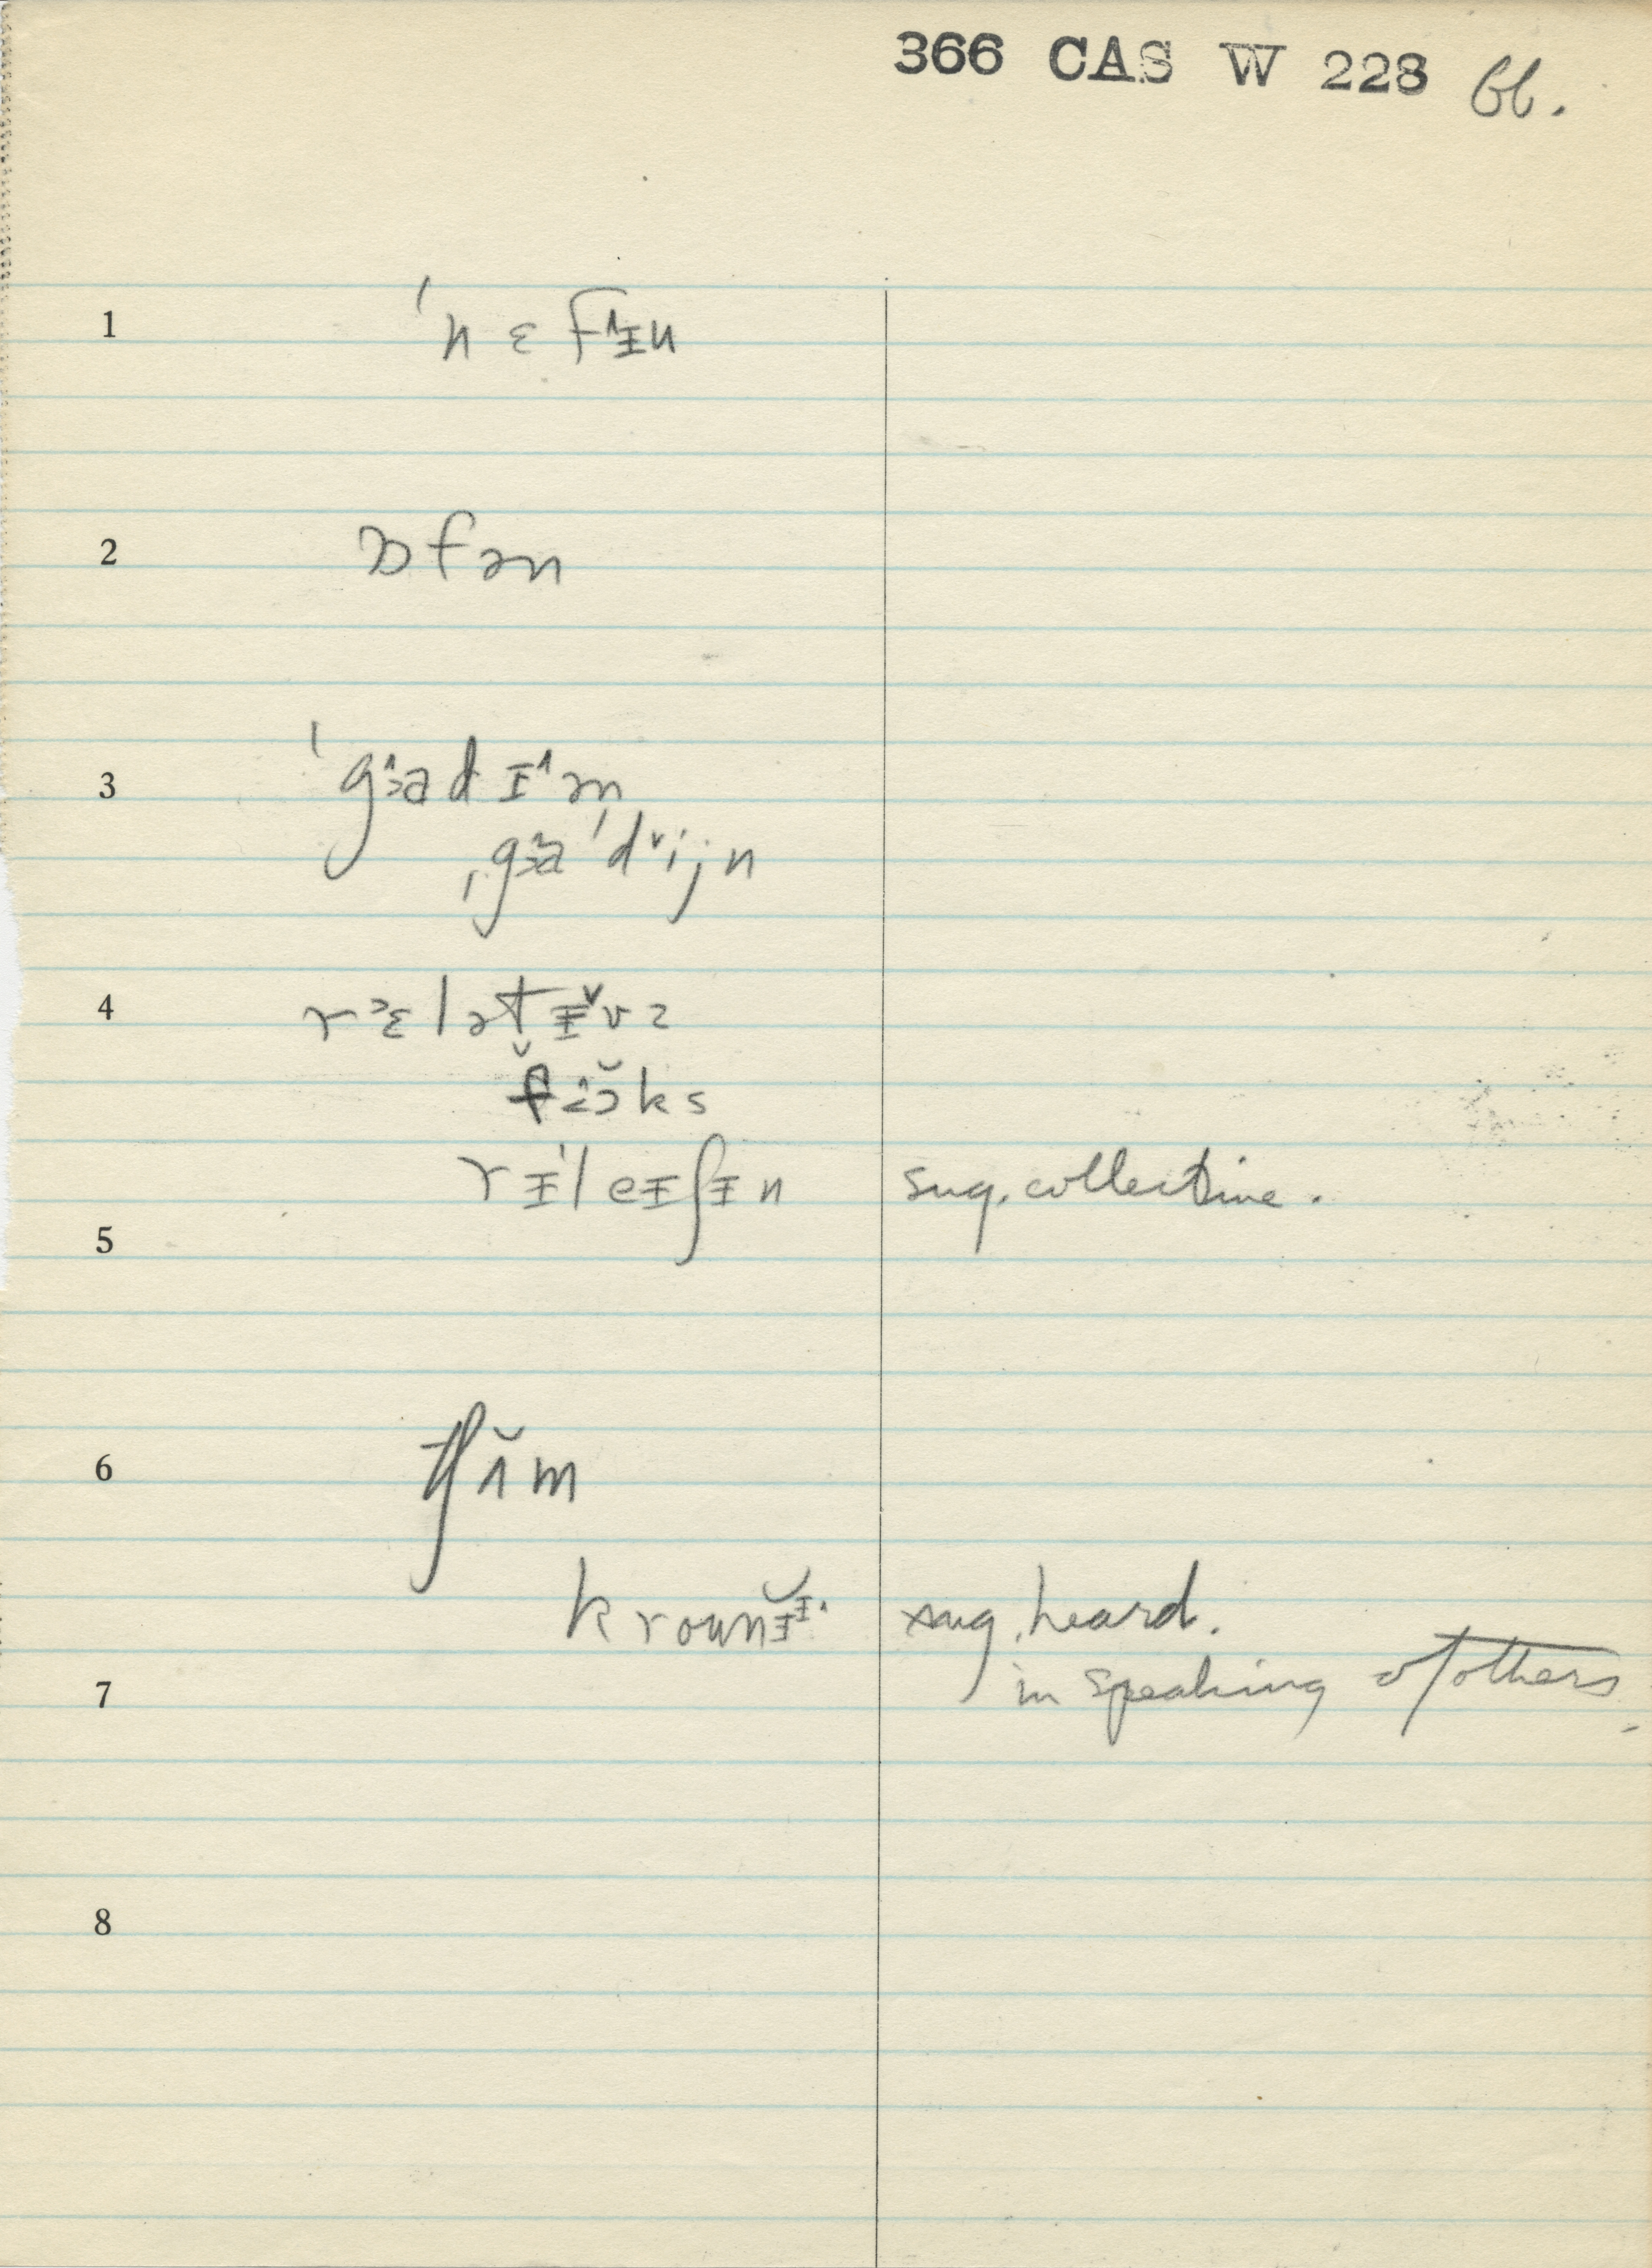 366 CAS W 228 bb.
1 ˈnɛfɪ˄n
2 ɒfən
3 ˈgɜ˄ədɪ˄ən
ˌgɜəˈdᵛijn
4 rɛ˃lətɪ˅vz
foks
rɪˈleɪʃɪn sug. collective.
5
6 tʃʌ̆m
kroʊnɪ sug. heard.
7 in speaking of others
8